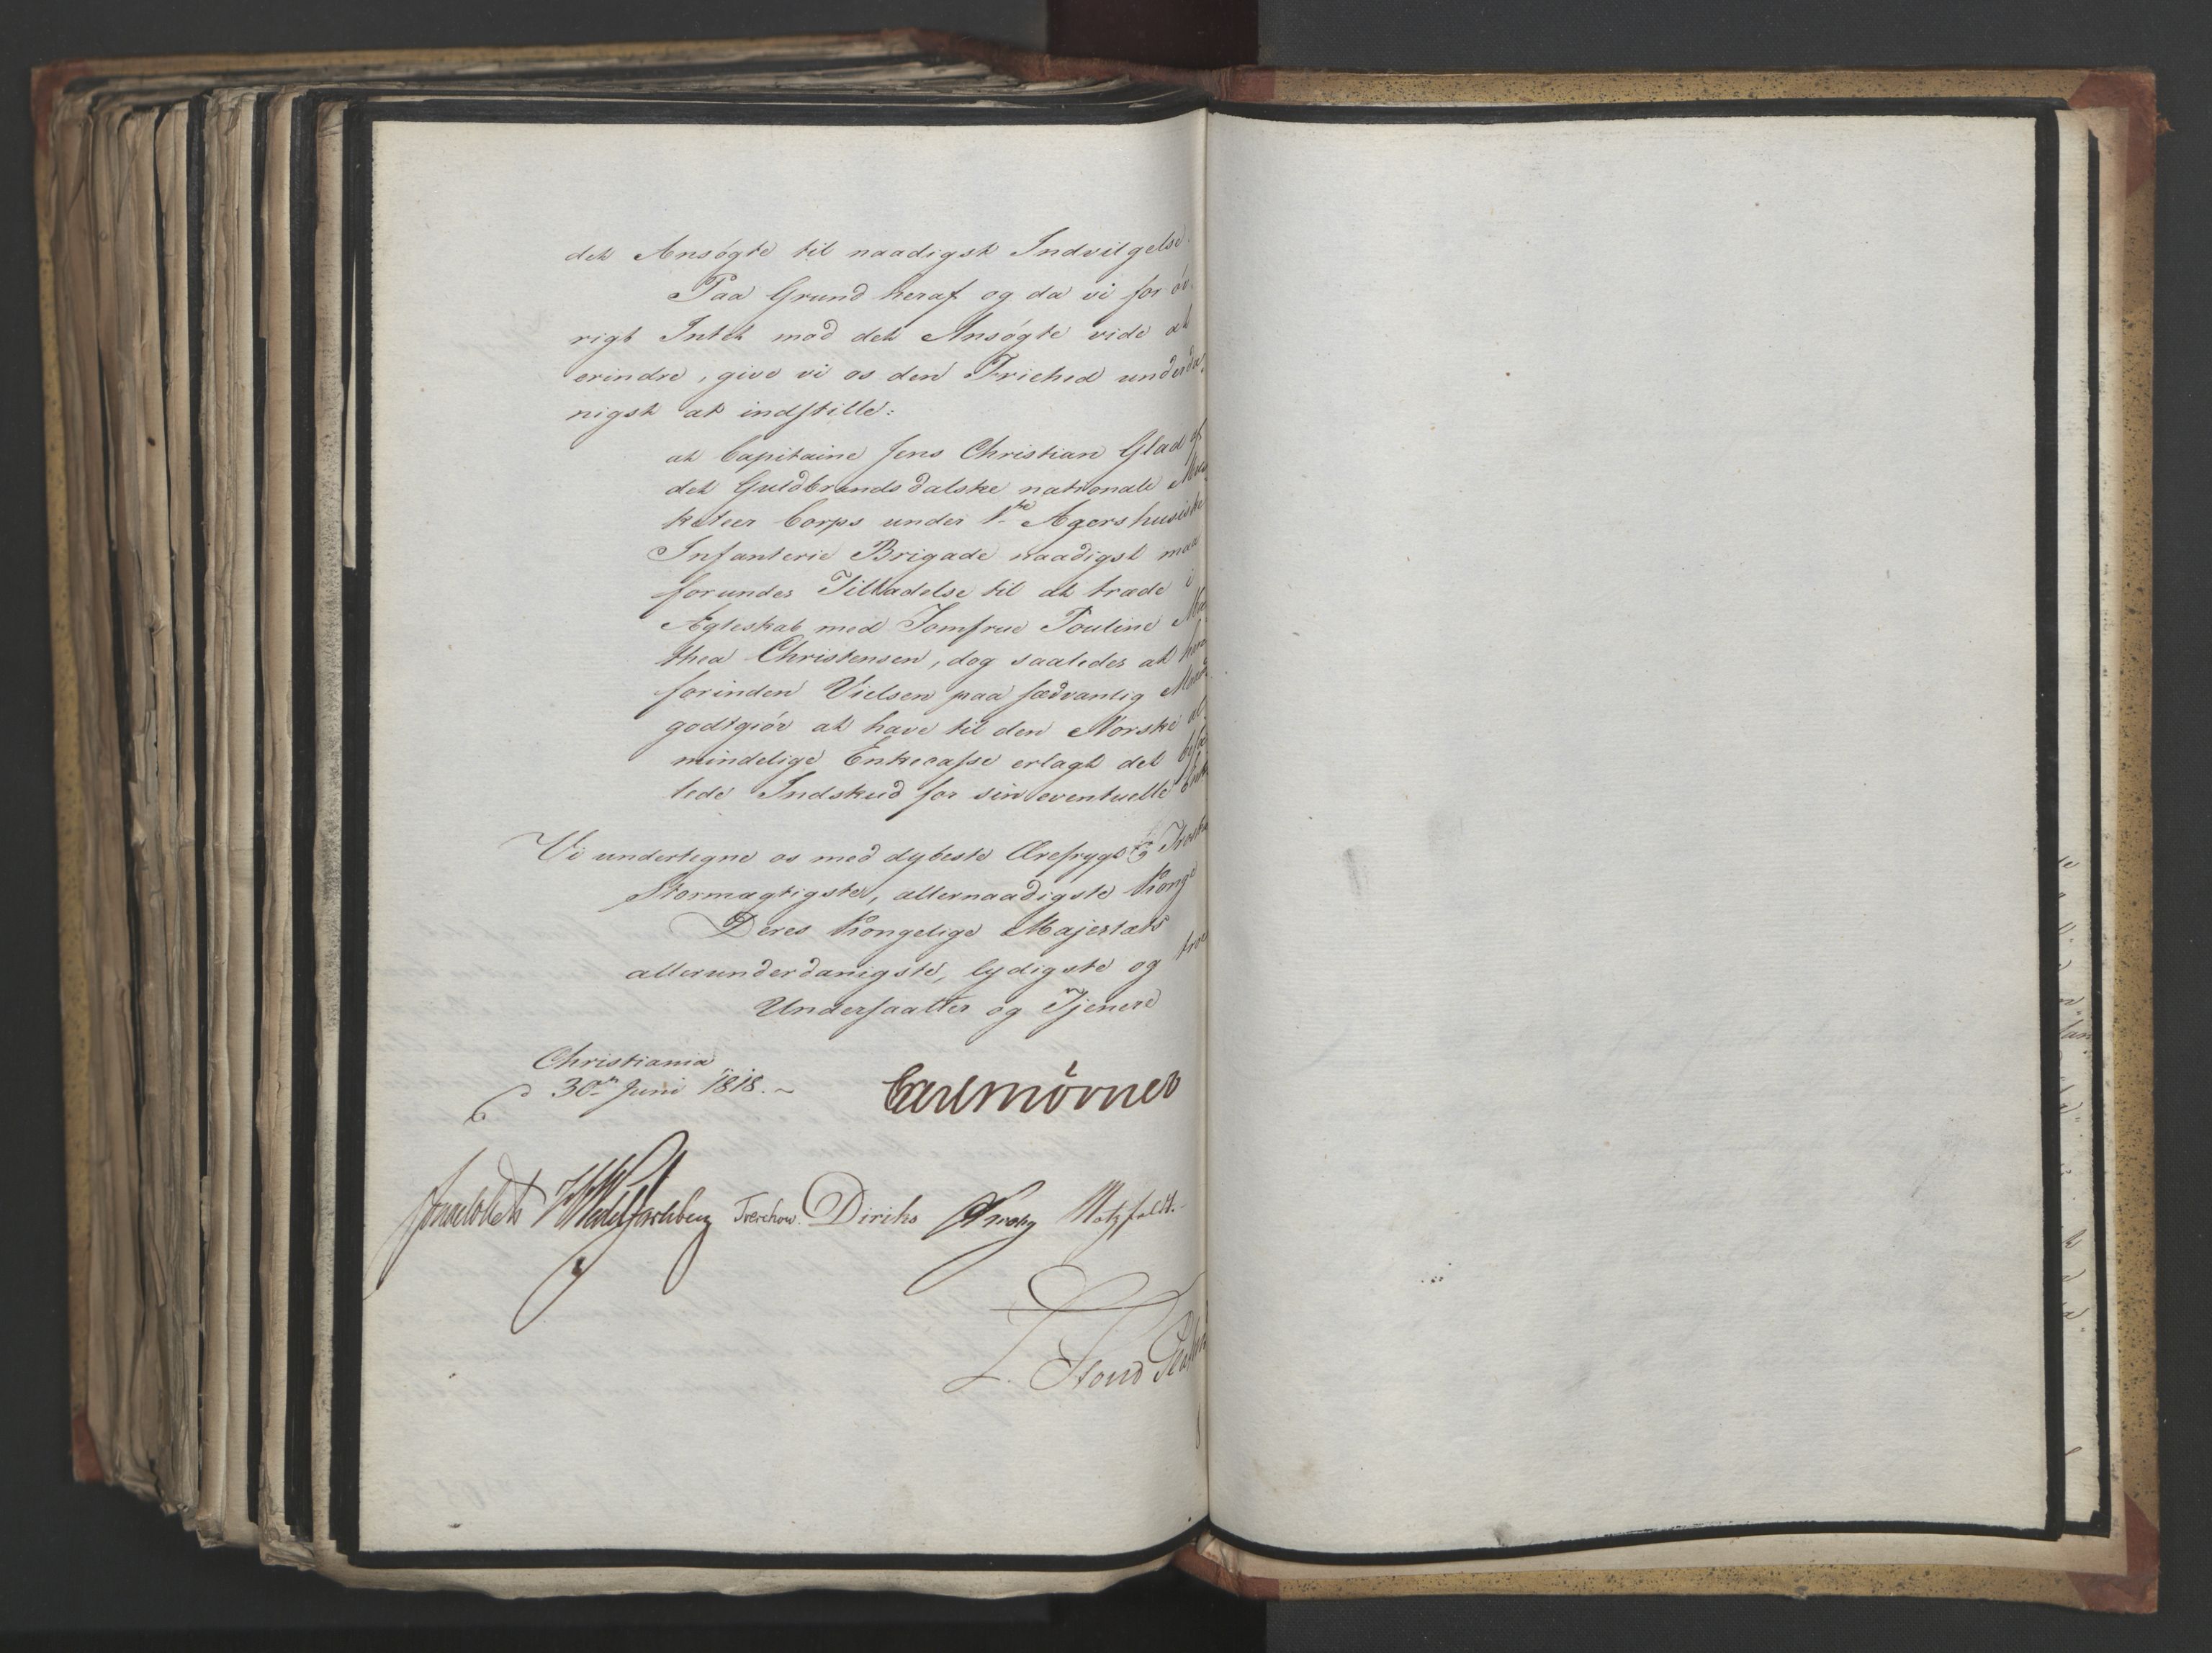 det Ansøgte til naadigst Indvilgelse.
Paa Grund heraf og da vi for øv-
rigt Intet mod det Ansøgte vide at
erindre, give vi os den Friehed underda-
nigst at indstille:
at Capitaine Jens Christian Glad af
det Guldbrandsdalske nationale Mus-
keteer Corps under 1ste Agershusiske
Infanterie Brigade naadigst maa
forundes Tilladelse til at træde i
Ægteskab med Jomfrue Pouline Ma-
thea Christensen, dog saaledes at han
forinden Vielsen paa sædvanlig Maade
godtgiør at have til den Norske al-
mindelige Enkecasse erlagt det befa-
lede Indskud for sin eventuelle Enke
Vi undertegne os med dybeste Ærefrygt &
Stormægtigste, allernaadigste Konge
Deres Kongelige Majestæts
allerunderdanigste, lydigste og troe
Undersaatter og Tjenere
Christiania
d 30te Juni 1818.
Carl Mörner
Sommerhielm HWedel Jarlsberg Treschow. Diriks Krohg Motzfeldt.
L. Stoud Platou